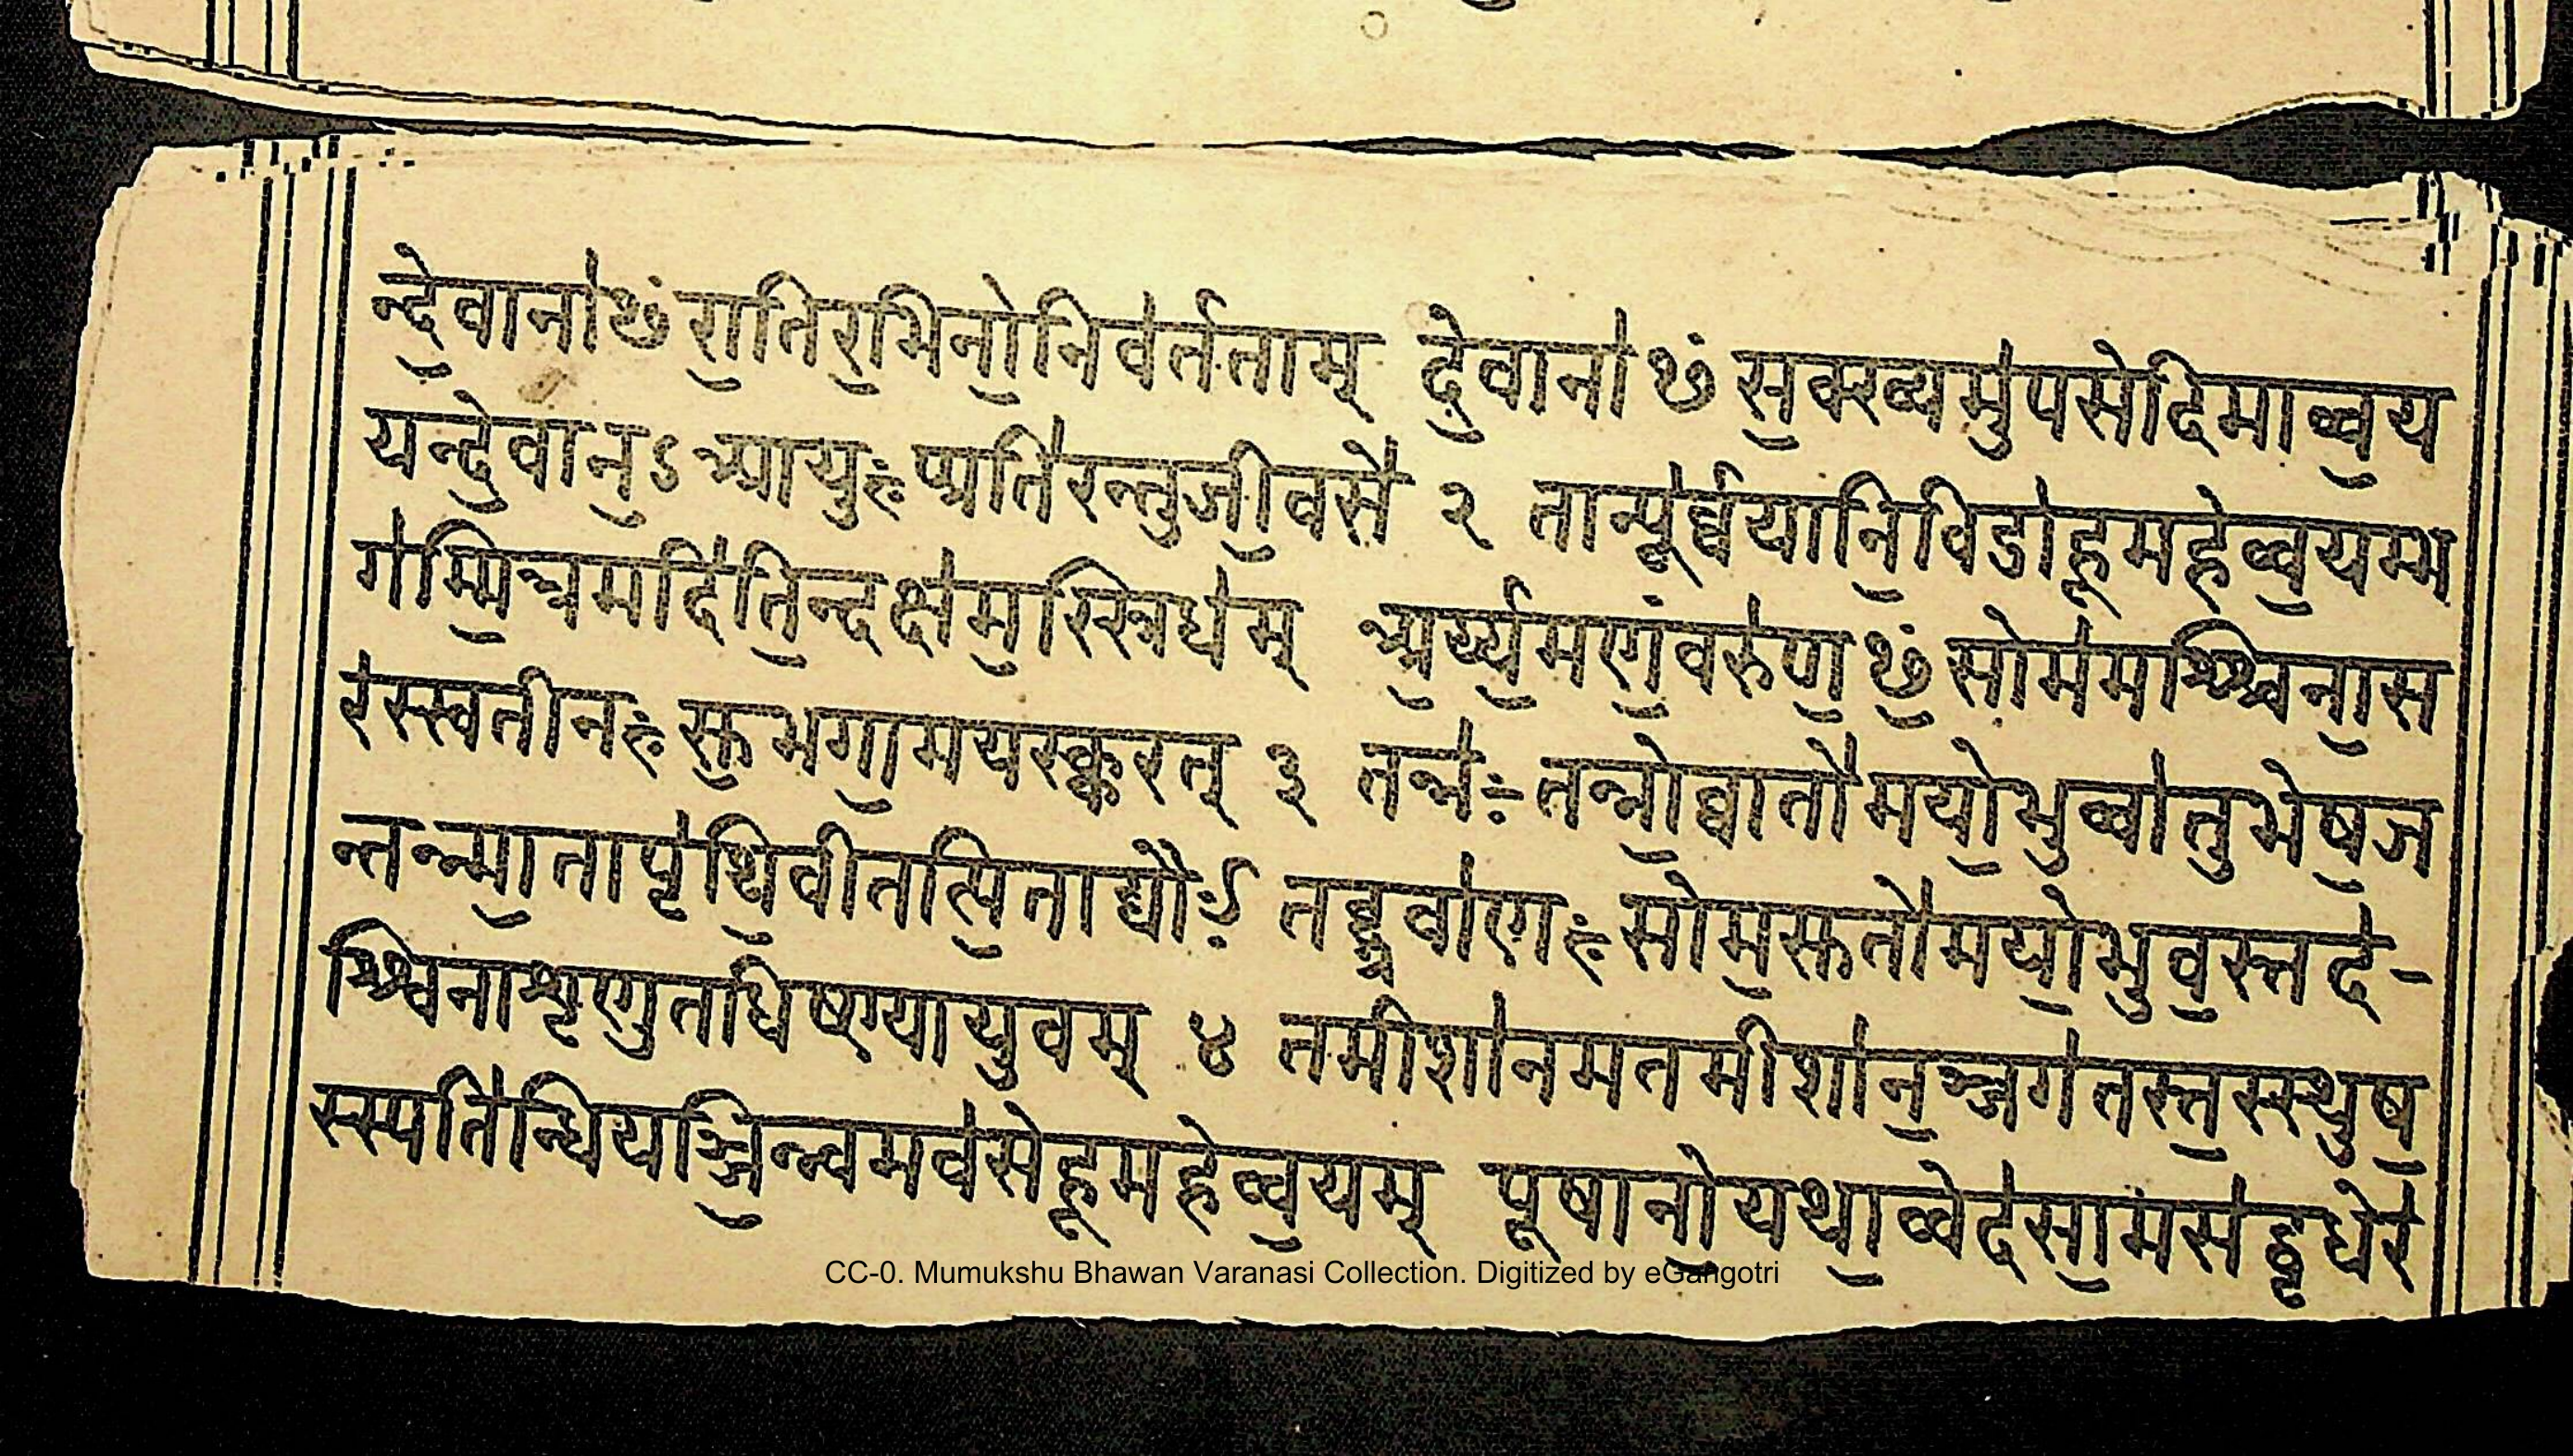 न्दे॒वाना॑ᳪ रा॒तिर॒भिनो॒निव॑र्तताम् दे॒वाना॑ᳪ स॒क्ख्यमु॑पसेदिमाव्व॒य
यन्दे॒वान॒ऽआयु॒ः प्प्रति॑रन्तुजी॒वसे॑ २ तान्पूर्व्व॑यानि॒विदा॑हूमहेव्व॒यम्भ
ग॑म्मि॒त्रमदि॑ति॒न्दक्ष॑म॒स्रिध॑म् अ॒र्य्य॒मणं॒वरु॑ण॒ᳪ सोम॑मश्श्विना॒स
र॑स्स्वतीनः सु॒भगा॒मयस्क्करत् ३ तन्न॑ः तन्नो॒व्वातो॑मयो॒भुव्वा॑तुभेष॒ज
न्तन्न्मा॒तापृ॑थि॒वीतत्पि॒ताद्यौः॑ तद्ग्राव्वा॑णः सोम॒सुतो॑मयो॒भुव॒स्तद॑-
श्श्विनाशृणुतधिष्ण्यायु॒वम् ४ तमीशा॑नमतमीशा॑न॒ञ्जग॑तस्त॒स्स्थुष॒
स्स्पति॑न्धियञ्जि॒न्न्वमव॑सेहूमहेव्व॒यम् पूषानो॒यथा॒व्वेद॑सा॒मस॑द्वृधेर॑
CC-0. Mumukshu Bhawan Varanasi Collection. Digitized by eGangotri